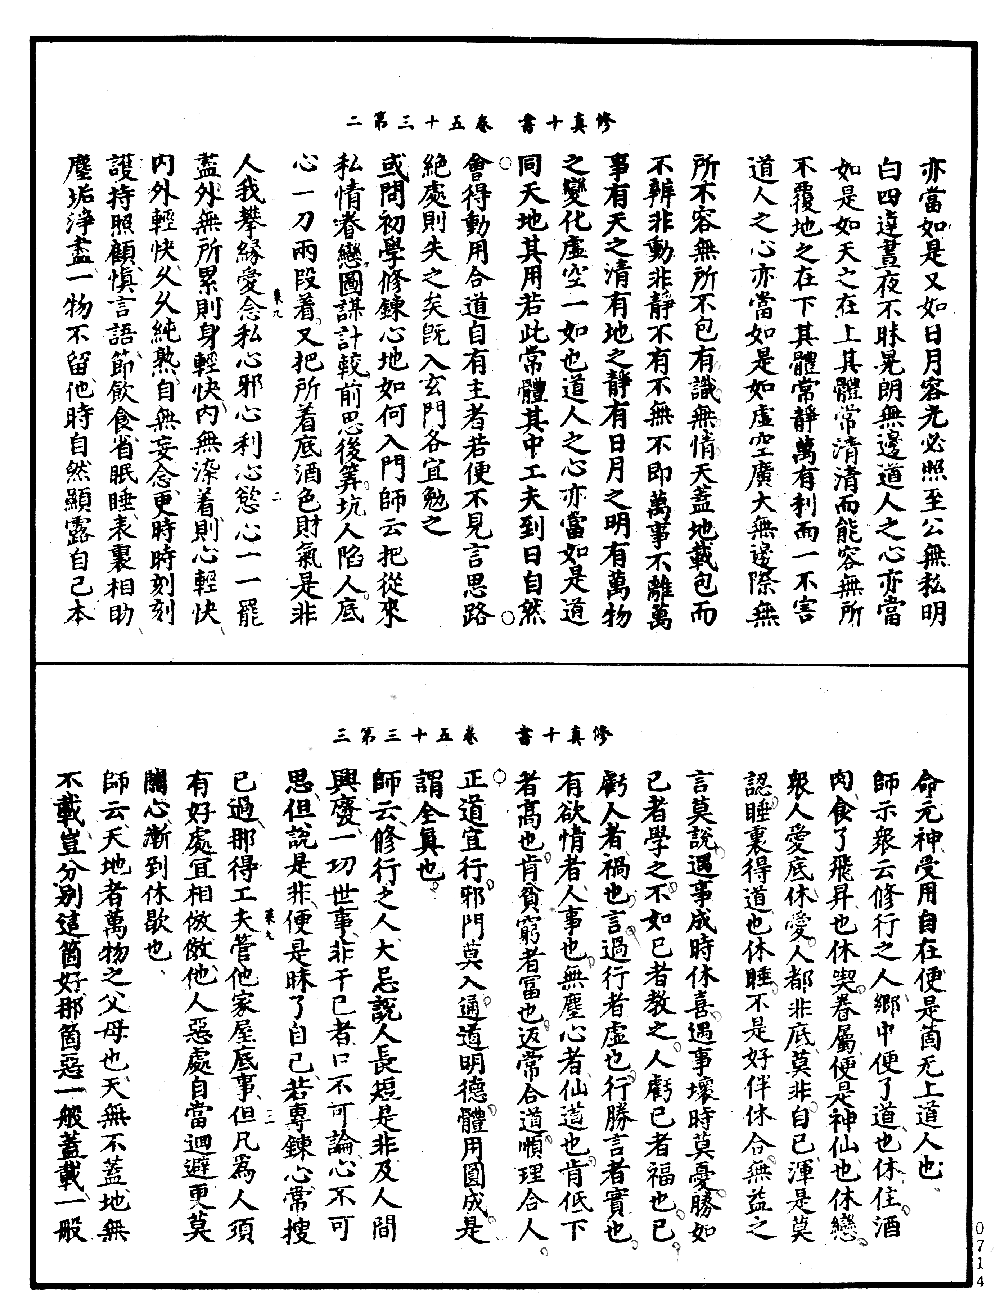 修真十書　卷五十三第二
亦當如是又如日月容光必照至公無私明
白四達晝夜不昧晃朗無邊道人之心亦當
如是如天之在上其體常清清而能容無所
不覆地之在下其體常靜萬有利而一不害
道人之心亦當如是如虛空廣大無邊際無
所不容無所不包有識無情天蓋地載包而
不辨非動非靜不有不無不即萬事不離萬
事有天之清有地之靜有日月之明有萬物
之變化虛空一如也道人之心亦當如是道
同天地其用若此常體其中工夫到日自然
會得動用合道自有主者若便不見言思路
絕處則失之矣旣入玄門各宜勉之
或問初學修鍊心地如何入門師云把從來
私情眷戀圖謀計較前思後筭坑人陷人底
心一刀兩段着又把所着底酒色財氣是非
人我攀緣愛念私心邪心利心慾心一一罷
蓋外無所累則身輕快內無染着則心輕快
內外輕快久久純熟自無妄念更時時刻刻
護持照顧愼言語節飲食省眠睡表裏相助
塵垢淨盡一物不留他時自然顯露自己本
修真十書　卷五十三第三
命元神受用自在便是箇无上道人也
師示衆云修行之人鄉中便了道也休住酒
肉食了飛昇也休喫眷屬便是神仙也休戀
衆人愛底休愛人都非底莫非自己渾是莫
認睡裏得道也休睡不是好伴休合無益之
言莫說遇事成時休喜遇事壞時莫憂勝如
已者學之不如已者教之人虧已者福也已
虧人者禍也言過行者虛也行勝言者實也
有欲情者人事也無塵心者仙道也肯低下
者高也肯貧窮者冨也返常合道順理合人
正道宜行邪門莫入通道明德體用圓成是
謂全眞也
師云修行之人大忌說人長短是非及人間
興廢一切世事非干已者口不可論心不可
思但說是非便是昧了自己若專鍊心常搜
已過那得工夫管他家屋底事但凡爲人須
有好處宜相倣傚他人惡處自當迴避更莫
關心漸到休歇也
師云天地者萬物之父母也天無不蓋地無
不載豈分别這箇好那箇惡一般蓋載一般
0714